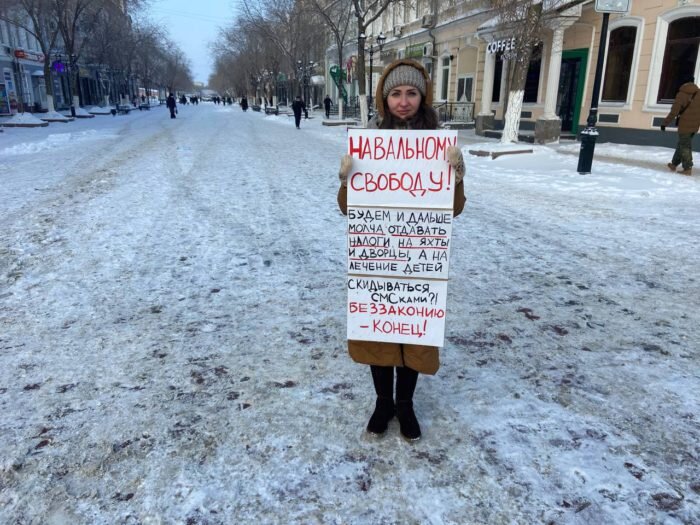 НАВАЛЬНОМУ
СВОБОДУ!
БУДЕМ И ДАЛЬШЕ
МОЛЧА ОТДАВАТЬ
НАЛОГИ НА ЯХТЫ
И ДВОРЦЫ, А НА
ЛЕЧЕНИЕ ДЕТЕЙ
СКИДЫВАТЬСЯ
СМСками?!
БЕЗЗАКОНИЮ
- КОНЕЦ!
COFFEE